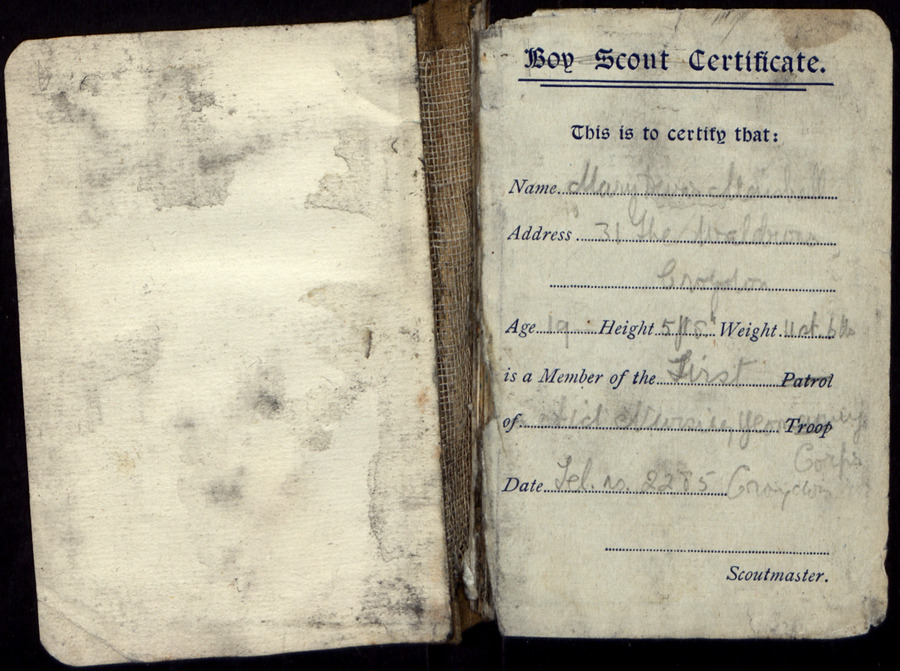 Boy Scout Certificate.
This is to certify that:
Name Mary
Address 31 The Waldrons
Croydon
Age 19 Height 5ft 5" Weight 11st 6lbs
is a Member of the First Patrol
of Nursing Yeomanry Troop
Corps
Date Tel. no. 2285 Croydon
Scoutmaster.